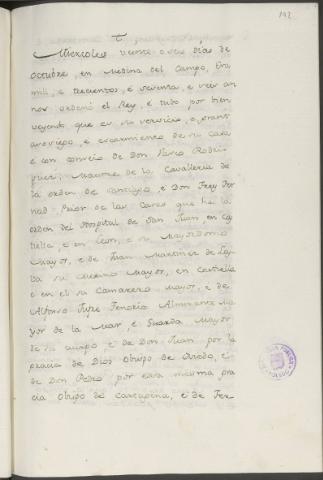 192
Miercoles veinte e seis dias de
octubre, en Medina del Campo, Era
mil, e trecientos, e setenta, e seis an
nos ordenó el Rey, e tubo por bien
veyendo que es su servicio, e, grant
provecho, e escarmiento de su casa
e con consejo de Don Vasco Rodri-
guez, Maestre de la Cavalleria de
la orden de Santiago, e Don Frey Fer
nad Prior de las Casas que ha la
orden del Hospital de San Juan en Ca
tiella, e en Leon, e su Mayordomo
Mayor, e de Juan Martinez de Ley
ba su Merino Mayor, en Castiella
e en el su Camarero Mayor, e de
Alfonso Jufre Tenorio Almirante Ma
yor de la Mar, e Guarda Mayor
de su cuerpo e de Don Juan por la
gracia de Dios Obispo de Oviedo, e
de Don Pedro por esta misma gra
cia Obispo de Cartagena, e de Fer-